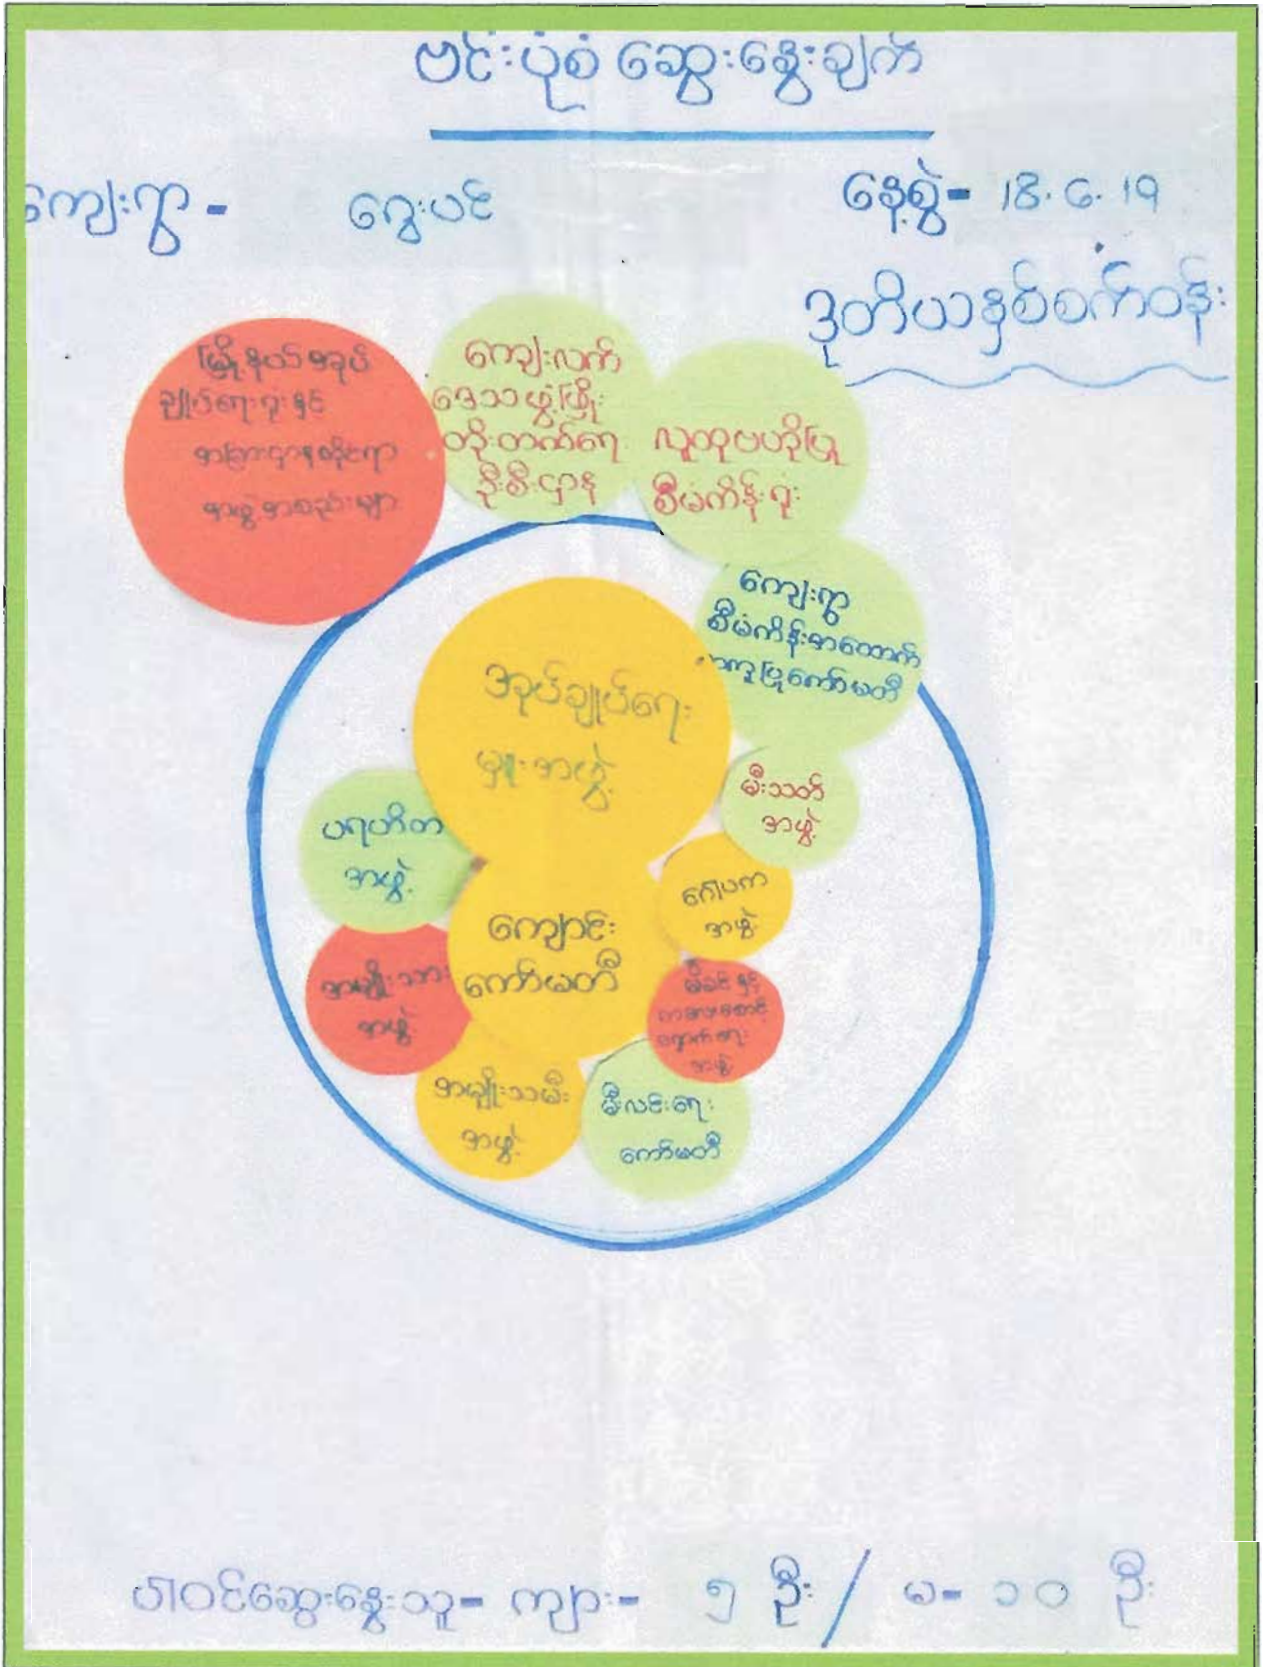 ဗင်းပုံစံ ဆွေးနွေးချက်
ကျေးရွာ - ဂွေးပင်
နေ့စွဲ - 18.6.19
ဒုတိယနှစ်စက်ဝန်း
မြို့နယ်အုပ်
ချုပ်ရေးရုံးနှင့်
အခြားဌာနဆိုင်ရာ
အဖွဲ့အစည်းများ
ကျေးလက်
ဒေသဖွံ့ဖြိုး
တိုးတက်ရေး
ဦးစီးဌာန
လူထုဗဟိုပြု
စီမံကိန်းရုံး
ကျေးရွာ
စီမံကိန်းအထောက်
အကူပြုကော်မတီ
အုပ်ချုပ်ရေး
မှူးအဖွဲ့
မီးသတ်
အဖွဲ့
ပရဟိတ
အဖွဲ့
ဂေါပက
အဖွဲ့
ကျောင်း
ကော်မတီ
အမျိုးသား
အဖွဲ့
မိခင်နှင့်
ကလေးစောင့်
ရှောက်ရေး
အဖွဲ့
အမျိုးသမီး
အဖွဲ့
မီးလင်းရေး
ကော်မတီ
ပါဝင်ဆွေးနွေးသူ - ကျား - ၅ ဦး / မ - ၁၀ ဦး